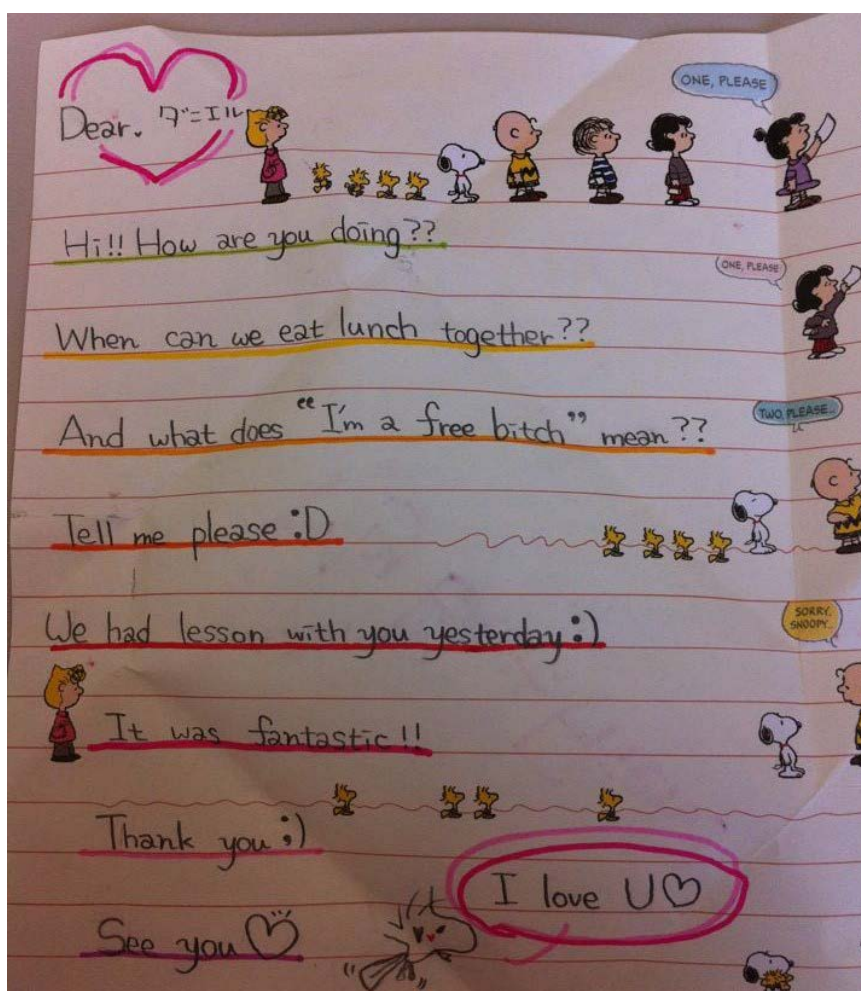 ONE, PLEASE
Dear. ダニエル
Hi!! How are you doing??
ONE, PLEASE
When can we eat lunch together??
TWO, PLEASE..
And what does "I'm a free bitch" mean??
Tell me please :D
SORRY, SNOOPY..
We had lesson with you yesterday :)
It was fantastic!!
Thank you ;)
I love U♡
See you♡